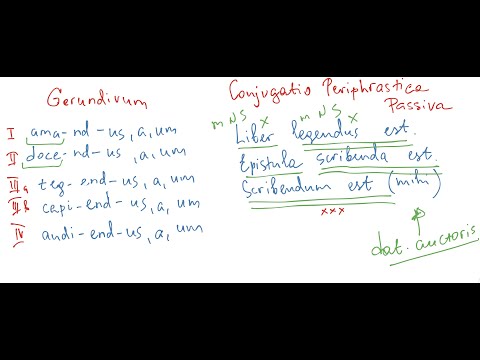 Gerundivum
I ama-nd-us, a, um
II doce-nd-us, a, um
III a teg-end-us, a, um
III b capi-end-us, a, um
IV audi-end-us, a, um
Conjugatio Periphrastica
Passiva
m N S x m N S x
Liber legendus est.
Epistula scribenda est.
Scribendum est (mihi)
xxx
dat. auctoris